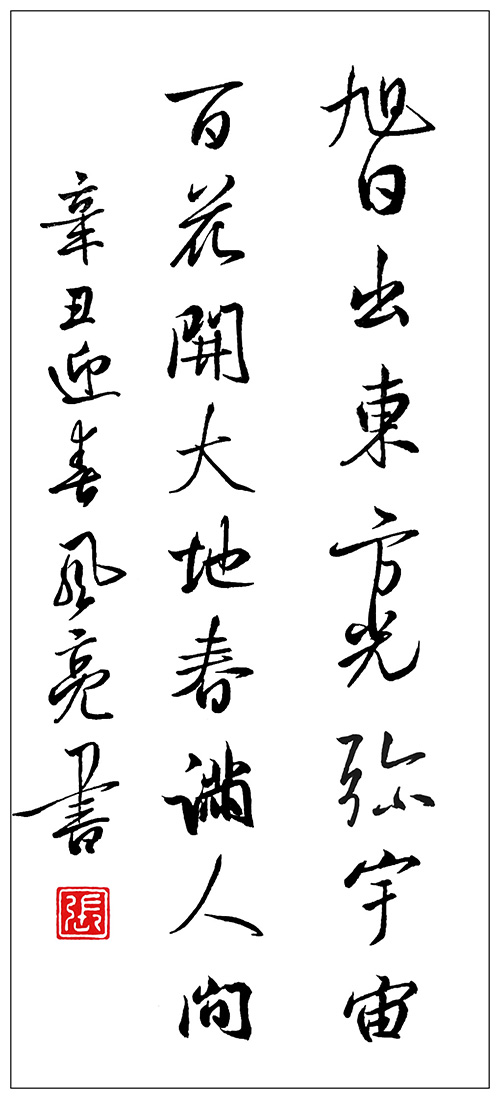 旭日出東方光弥宇宙
百花開大地春滿人间
辛丑迎春風亮書
張